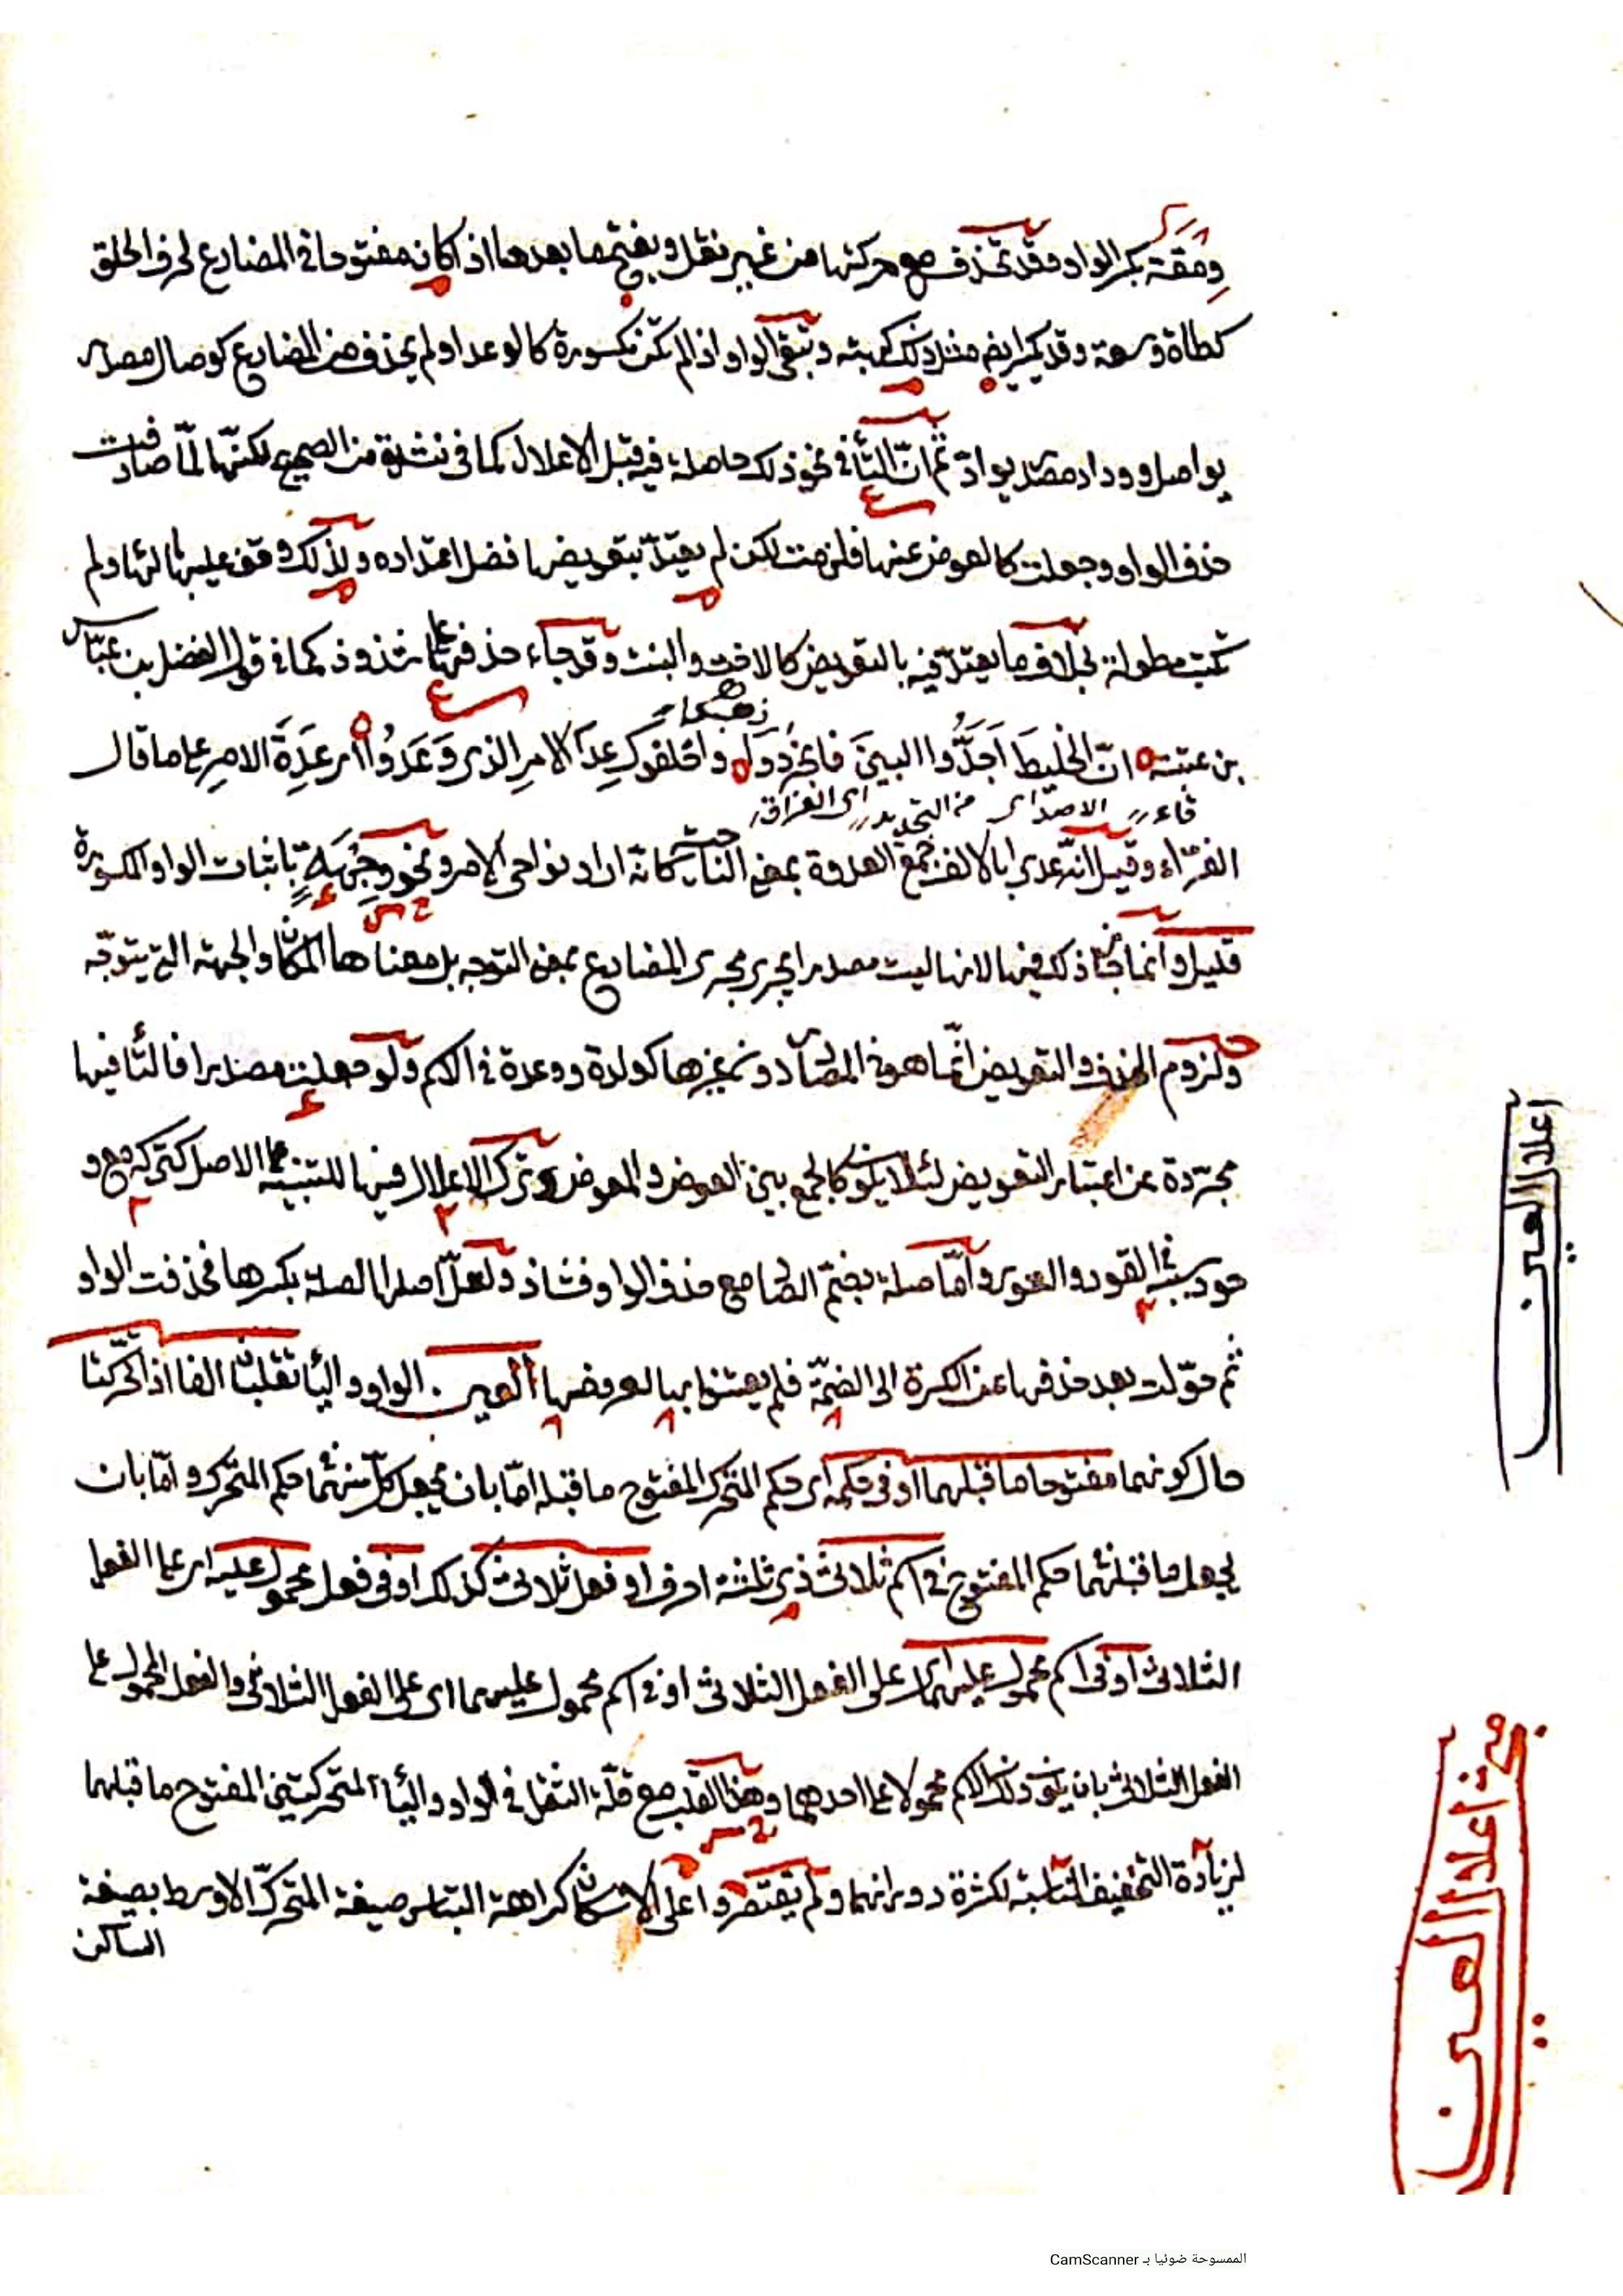 ومقة بكسر الواو وقد تحذف مع حركتها من غير نقل ويفتح ما بعدها اذا كان مفتوحا في المضارع لحرف الحلق
كطاة وسعة وقد يكسر ايضا مثل ذلك كهبة وتبقى الواو اذا لم تكن مكسورة كالوعد او لم يحذف من المضارع كوصال مصدر
يواصل ووداد مصدر يوادّ ثم انّ التأ في نحو ذلك حاصلة فيه قبل الاعلال كما في نشدة من الصحيح لكنّها لمّا صادفت
حذف الواو وجعلت كالعوض عنها فلزمت لكن لم يعتدّ بتعويضها فضل اعتداده ولذلك وقف عليها بالهأ ولم
تكتب مطولة بخلاف ما يعتدّ فيه بالتعويض كالاخت والبنت وقد جاء حذفها على شذوذ كما في قول الفضل بن عبّاس
بن عتبة انّ الخليط اَجَدُّوا البينَ فانجَرَدُوا واخلفوك عِدَ الامرِ الذي وَعَدُوا أى عِدَةَ الامرِ على ما قال
الفرّاء وقيل انّه عدى بالالف جمع العدوة بمعنى الناحية كانّه اراد نواحى الامر ونحو وِجْهَةٍ باثبات الواو المكسورة
قليل وانما جاز ذلك فيها لانها ليست مصدرا يجرى مجرى المضارع بمعنى التوجه بل معناها المكان والجهة التى يتوجّه
ولزوم الحذف والتعويض انّما هو في المصادر دون غيرها كولدة ووعدة في الاسم ولو جعلت مصدرا فالتأ فيها
مجرّدة عن اعتبار التعويض لئلا يكون كالجمع بين العوض والمعوض وترك الاعلال فيها للتنبيه على الاصل كتركه مع و
جود سببه في القود والعور وامّا صلة بضمّ الصاد مع حذف الواو فشاذ ولعلّ اصلها الصلة بكسرها فحذفت الواو
ثم حوّلت بعد حذفها عن الكسرة الى الضمّة فلم يعتنوا بها لعروضها العين . الواو واليأ تقلبان الفا اذا تحرّكتا
حال كونهما مفتوحا ما قبلهما او في حكمه أى حكم المتحرك المفتوح ما قبله امّا بان يجعل كلّ منهما حكم المتحرك وامّا بان
يجعل ما قبلهما حكم المفتوح في اسم ثلاثى ذى ثلثة احرف او فعل ثلاثى كذلك او في فعل محمول عليه اى على الفعل
الثلاثى او في اسم محمول عليهما اى على الفعل الثلاثى او في اسم محمول عليهما اى على الفعل الثلاثى والفعل المحمول على
الفعل الثلاثى بان يكون ذلك الاسم محمولا على احدهما وهذا القلب مع قلّة الثقل في الواو واليأ المتحركتين المفتوح ما قبلهما
لزيادة التخفيف المناسبة لكثرة دورانهما ولم يقتصروا على الاسكان كراهة التباس صيغة المتحرّك الاوسط بصيغة
الساكن
اعلال العين
اعلال العين
الممسوحة ضوئيا بـ CamScanner